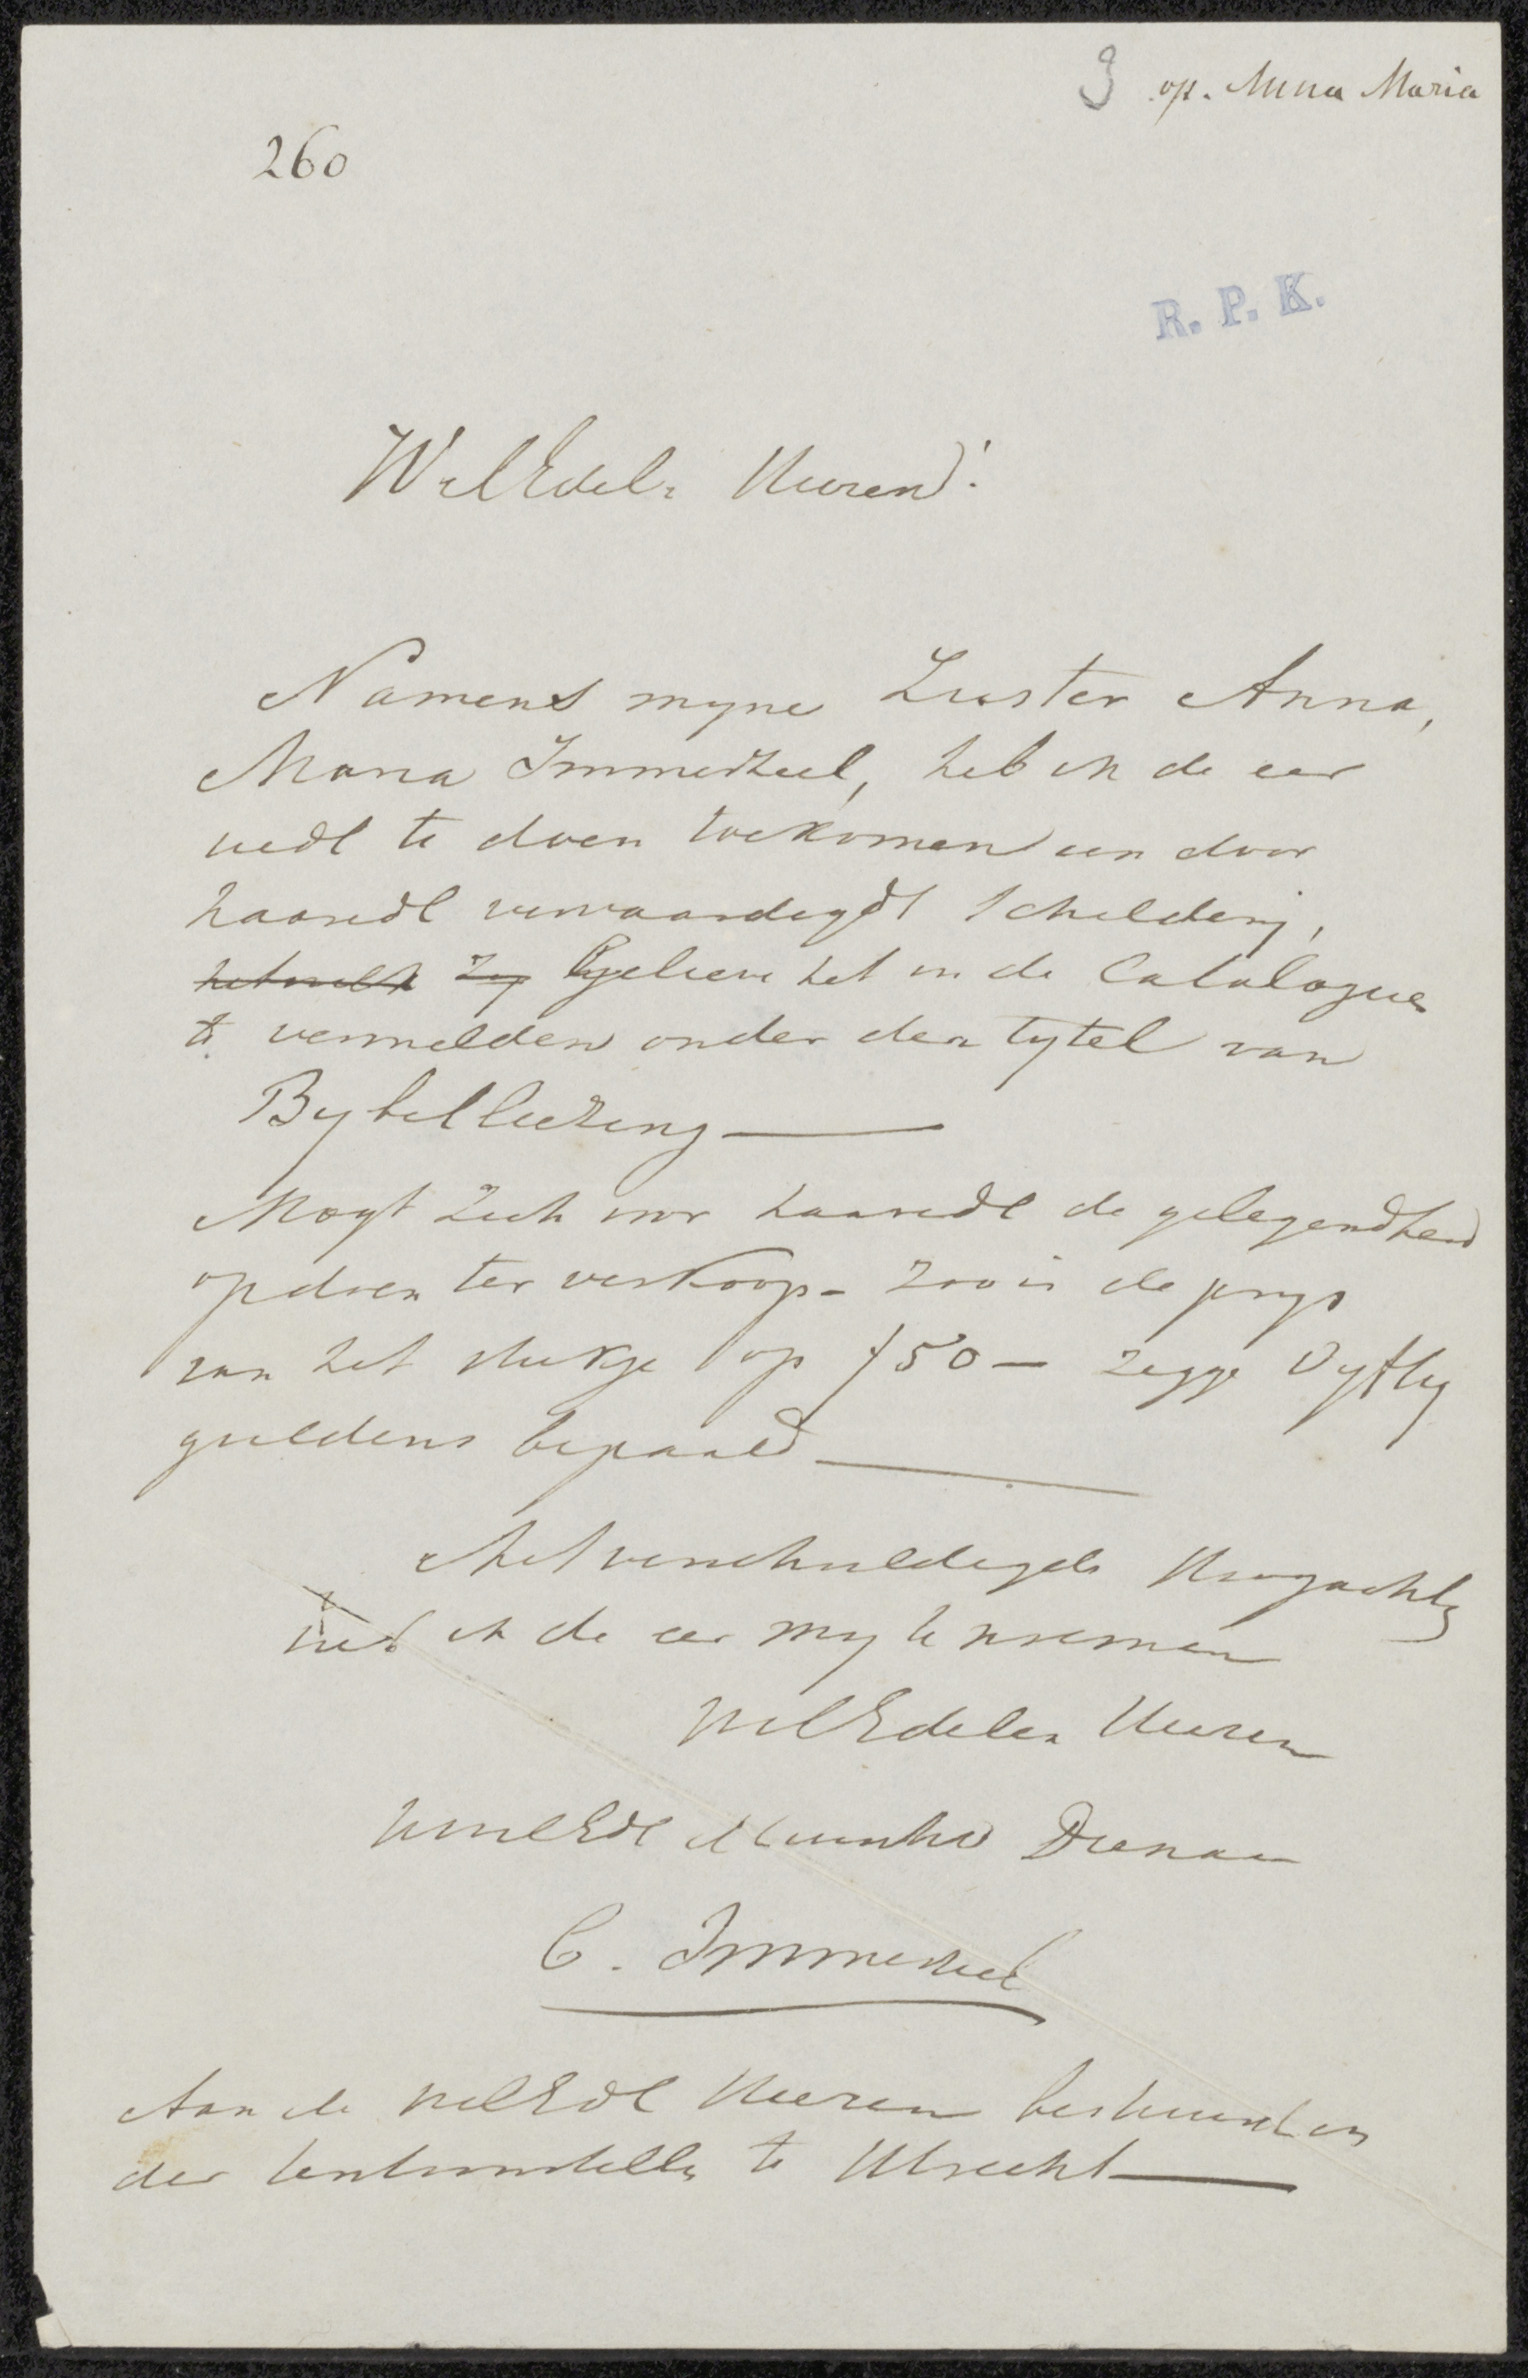 3 op. Anna Maria
260
R. P. K.
WelEdele Heeren!
Namens myne Zuster Anna,
Maria Immerzeel, heb ik de eer
uedl te doen toekomen een door
haaredl vervaardigdt schildery,
hetwelk zy Gelieve het in de Catalogus
te vermelden onder den tytel van
Bybellezing —
Mogt zich voor haaredl de gelegendheid
opdoen ter verkoop - zoo is de prys
van het stukje op ƒ50 — zegge Vyftig
guldens bepaald —
Met verschuldigde Hoogachtg
heb ik de eer my te noemen
WelEdelen Heeren
UwelEdl Dienaar
C. Immerzeel
Aan de WelEdl Heeren bestuurderen
der tentoonstellg te Utrecht —